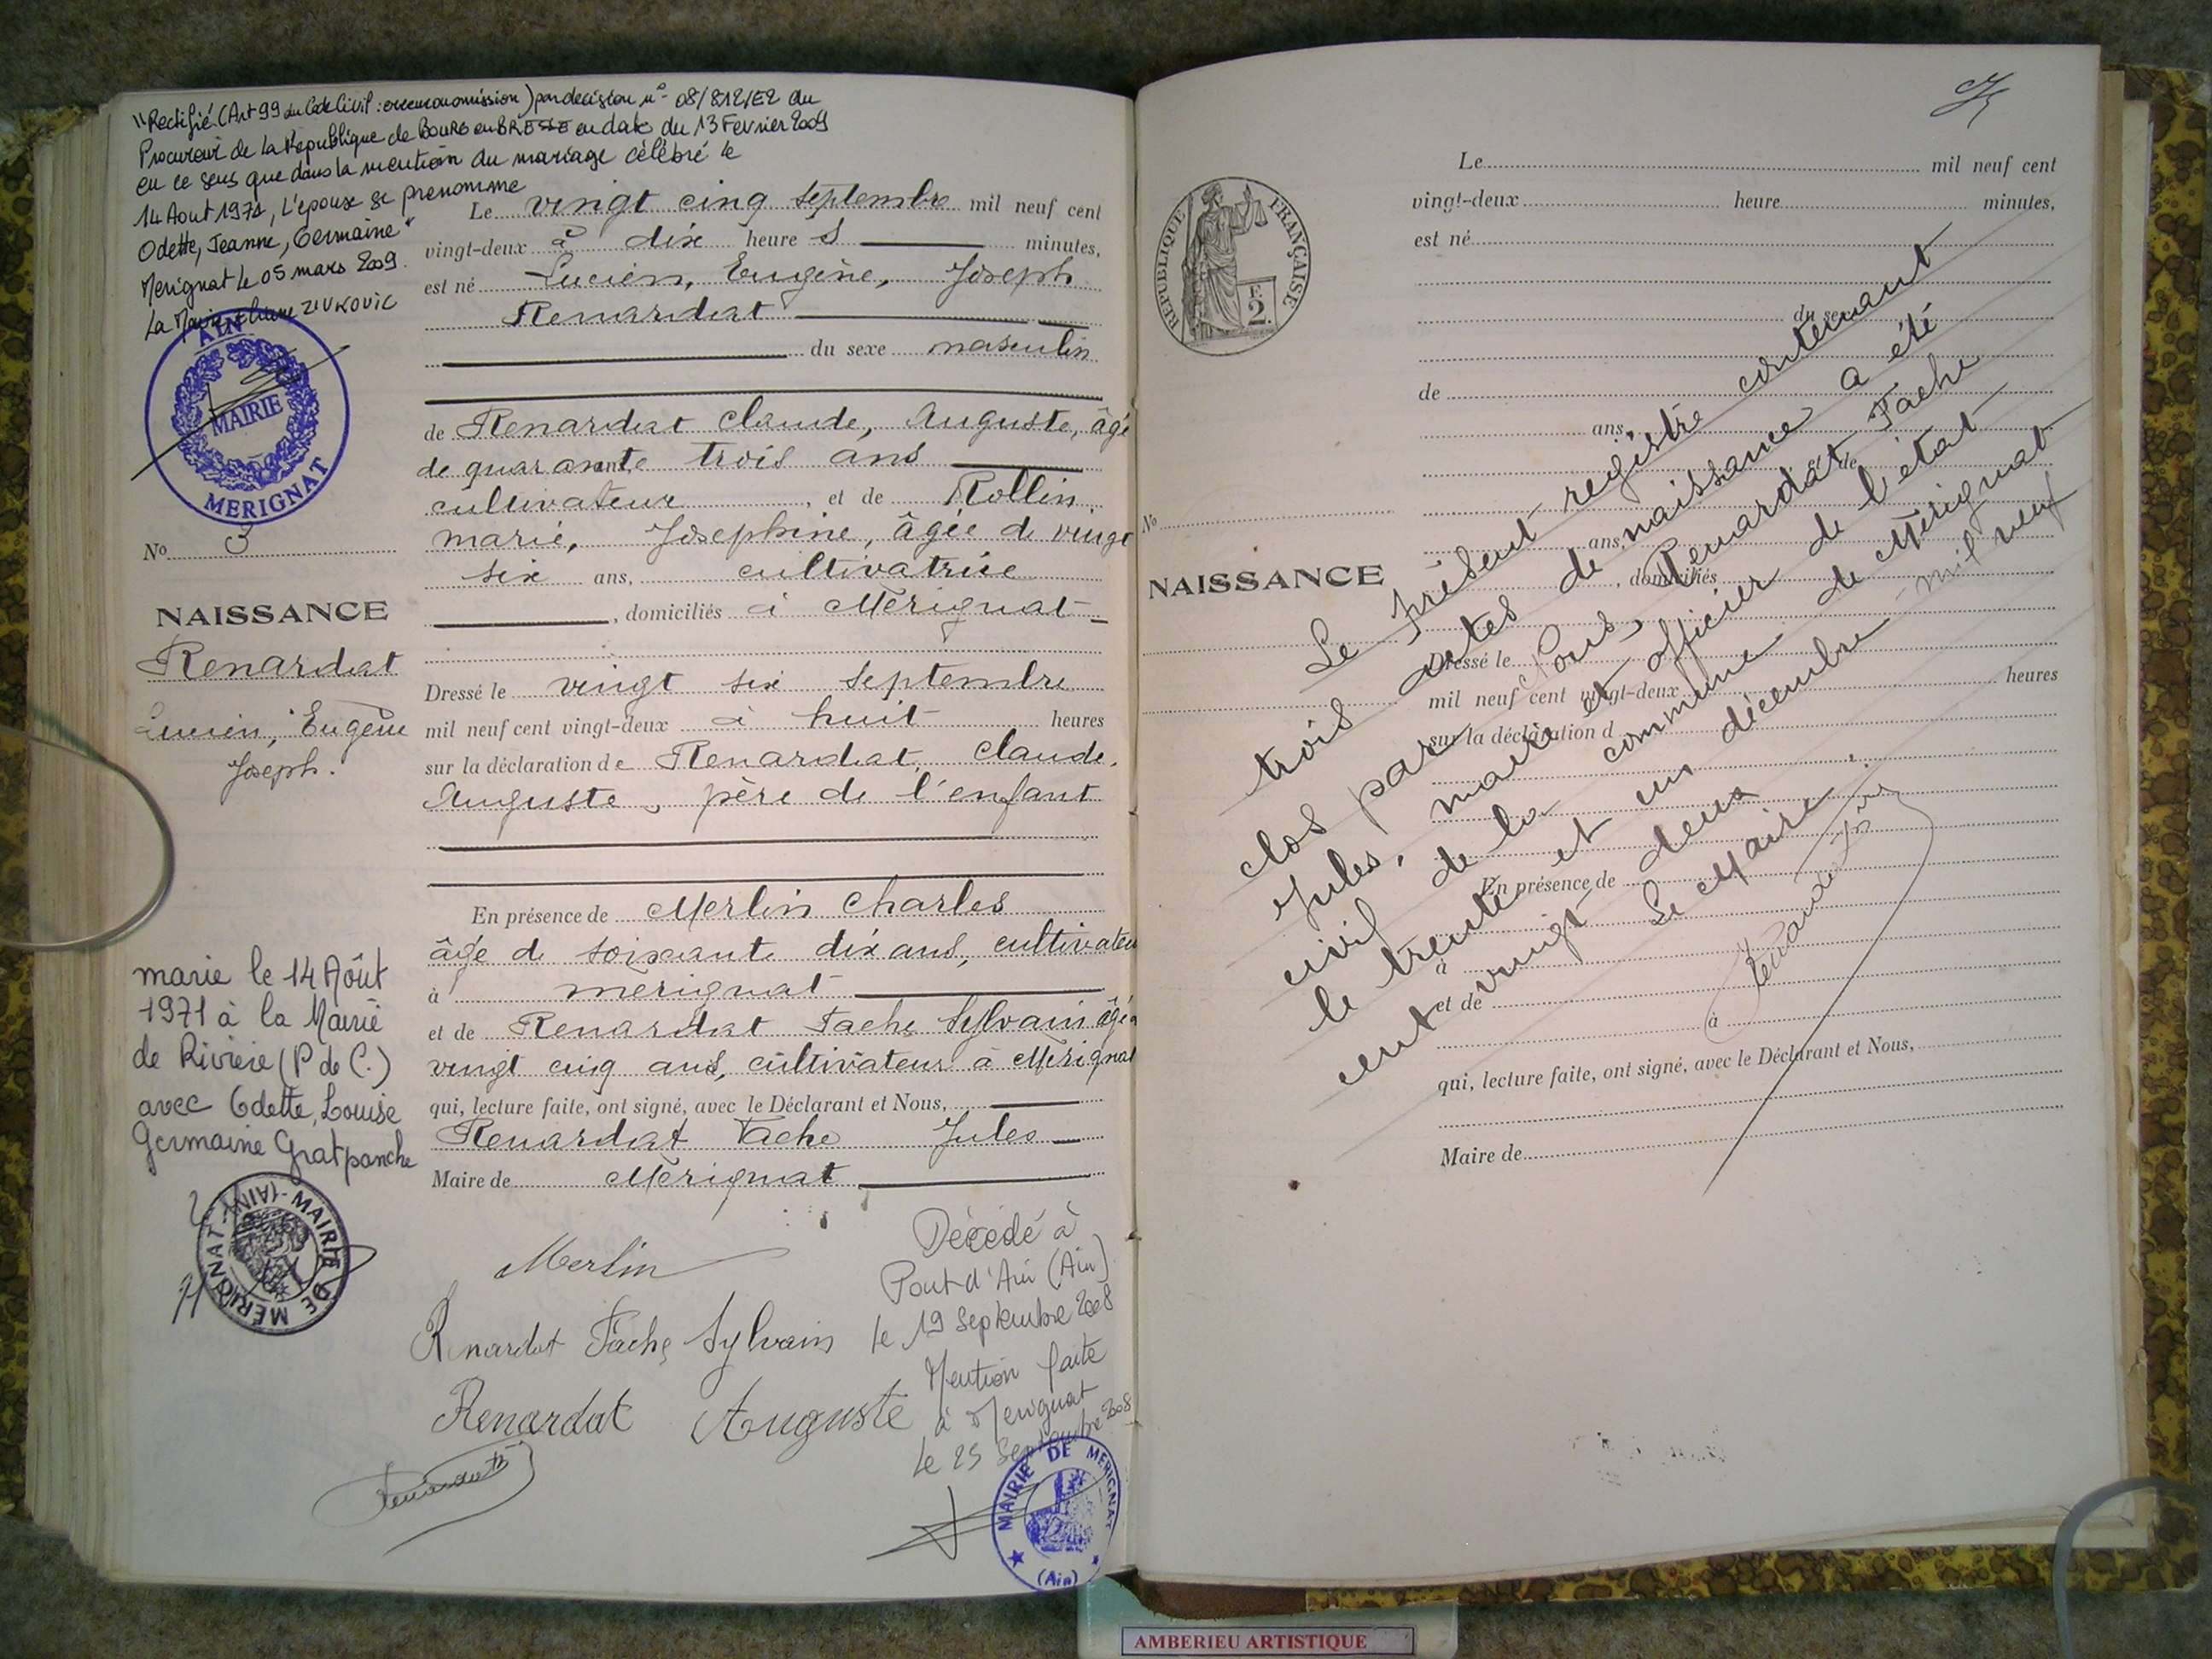 "Rectifié (Art 99 du Code Civil : erreur ou omission) par decision n° 08/812/E2 du
Procureur de la République de BOURG en BRESSE en date du 13 Fevrier 2009
en ce sens que dans la mention du mariage célébré le
14 Aout 1971, L'epouse se prenomme
Odette, Jeanne, Germaine"
Merignat le 05 mars 2009.
La Maire ZIVKOVIC
AIN
MAIRIE
MERIGNAT
No 3
NAISSANCE
Renardat
Lucien, Eugène
Joseph.
marie le 14 Aôut
1971 à la Mairie
de Riviere (P de C.)
avec Odette, Louise
Germaine Gratpanche
MAIRIE DE MERIGNAT (AIN)
Le vingt cinq Septembre mil neuf cent
vingt-deux à dix heure s minutes,
est né Lucien, Eugène, Joseph
Renardat
du sexe masculin
de Renardat Claude, Auguste, âgé
de quarante trois ans
cultivateur, et de Rollin,
marie, Josephine, âgée de vingt
six ans, cultivatrice
, domiciliés à Mérignat
Dressé le vingt six Septembre
mil neuf cent vingt-deux à huit heures
sur la déclaration de Renardat, Claude,
Auguste, père de l'enfant
En présence de Merlin Charles
âgé de soixante dix ans, cultivateur
à merignat
et de Renardat Tache Sylvain âgé
vingt cinq ans, cultivateur à Mérignat
qui, lecture faite, ont signé, avec le Déclarant et Nous,
Renardat Tache Jules
Maire de Mérignat
Merlin
Renardat Tache Sylvain
Renardat Auguste
Décédé à
Pont d'Ain (Ain)
le 19 Septembre 2008
Mention faite
à Merignat
Le 25 Septembre 2008
MAIRIE DE MERIGNAT
(Ain)
REPUBLIQUE FRANÇAISE
2
Le mil neuf cent
vingt-deux heure minutes,
est né
du sexe
de
ans,
et de
No
ans,
, domiciliés
NAISSANCE
Dressé le
mil neuf cent vingt-deux heures
sur la déclaration d
En présence de
à
et de
à
qui, lecture faite, ont signé, avec le Déclarant et Nous,
Maire de
Le présent registre contenant
trois actes de naissance a été
clos par Nous, Renardat Tache
Jules, maire et officier de l'état
civil de la commune de Mérignat
le trente et un décembre mil neuf
cent vingt deux.
Le Maire
AMBERIEU ARTISTIQUE